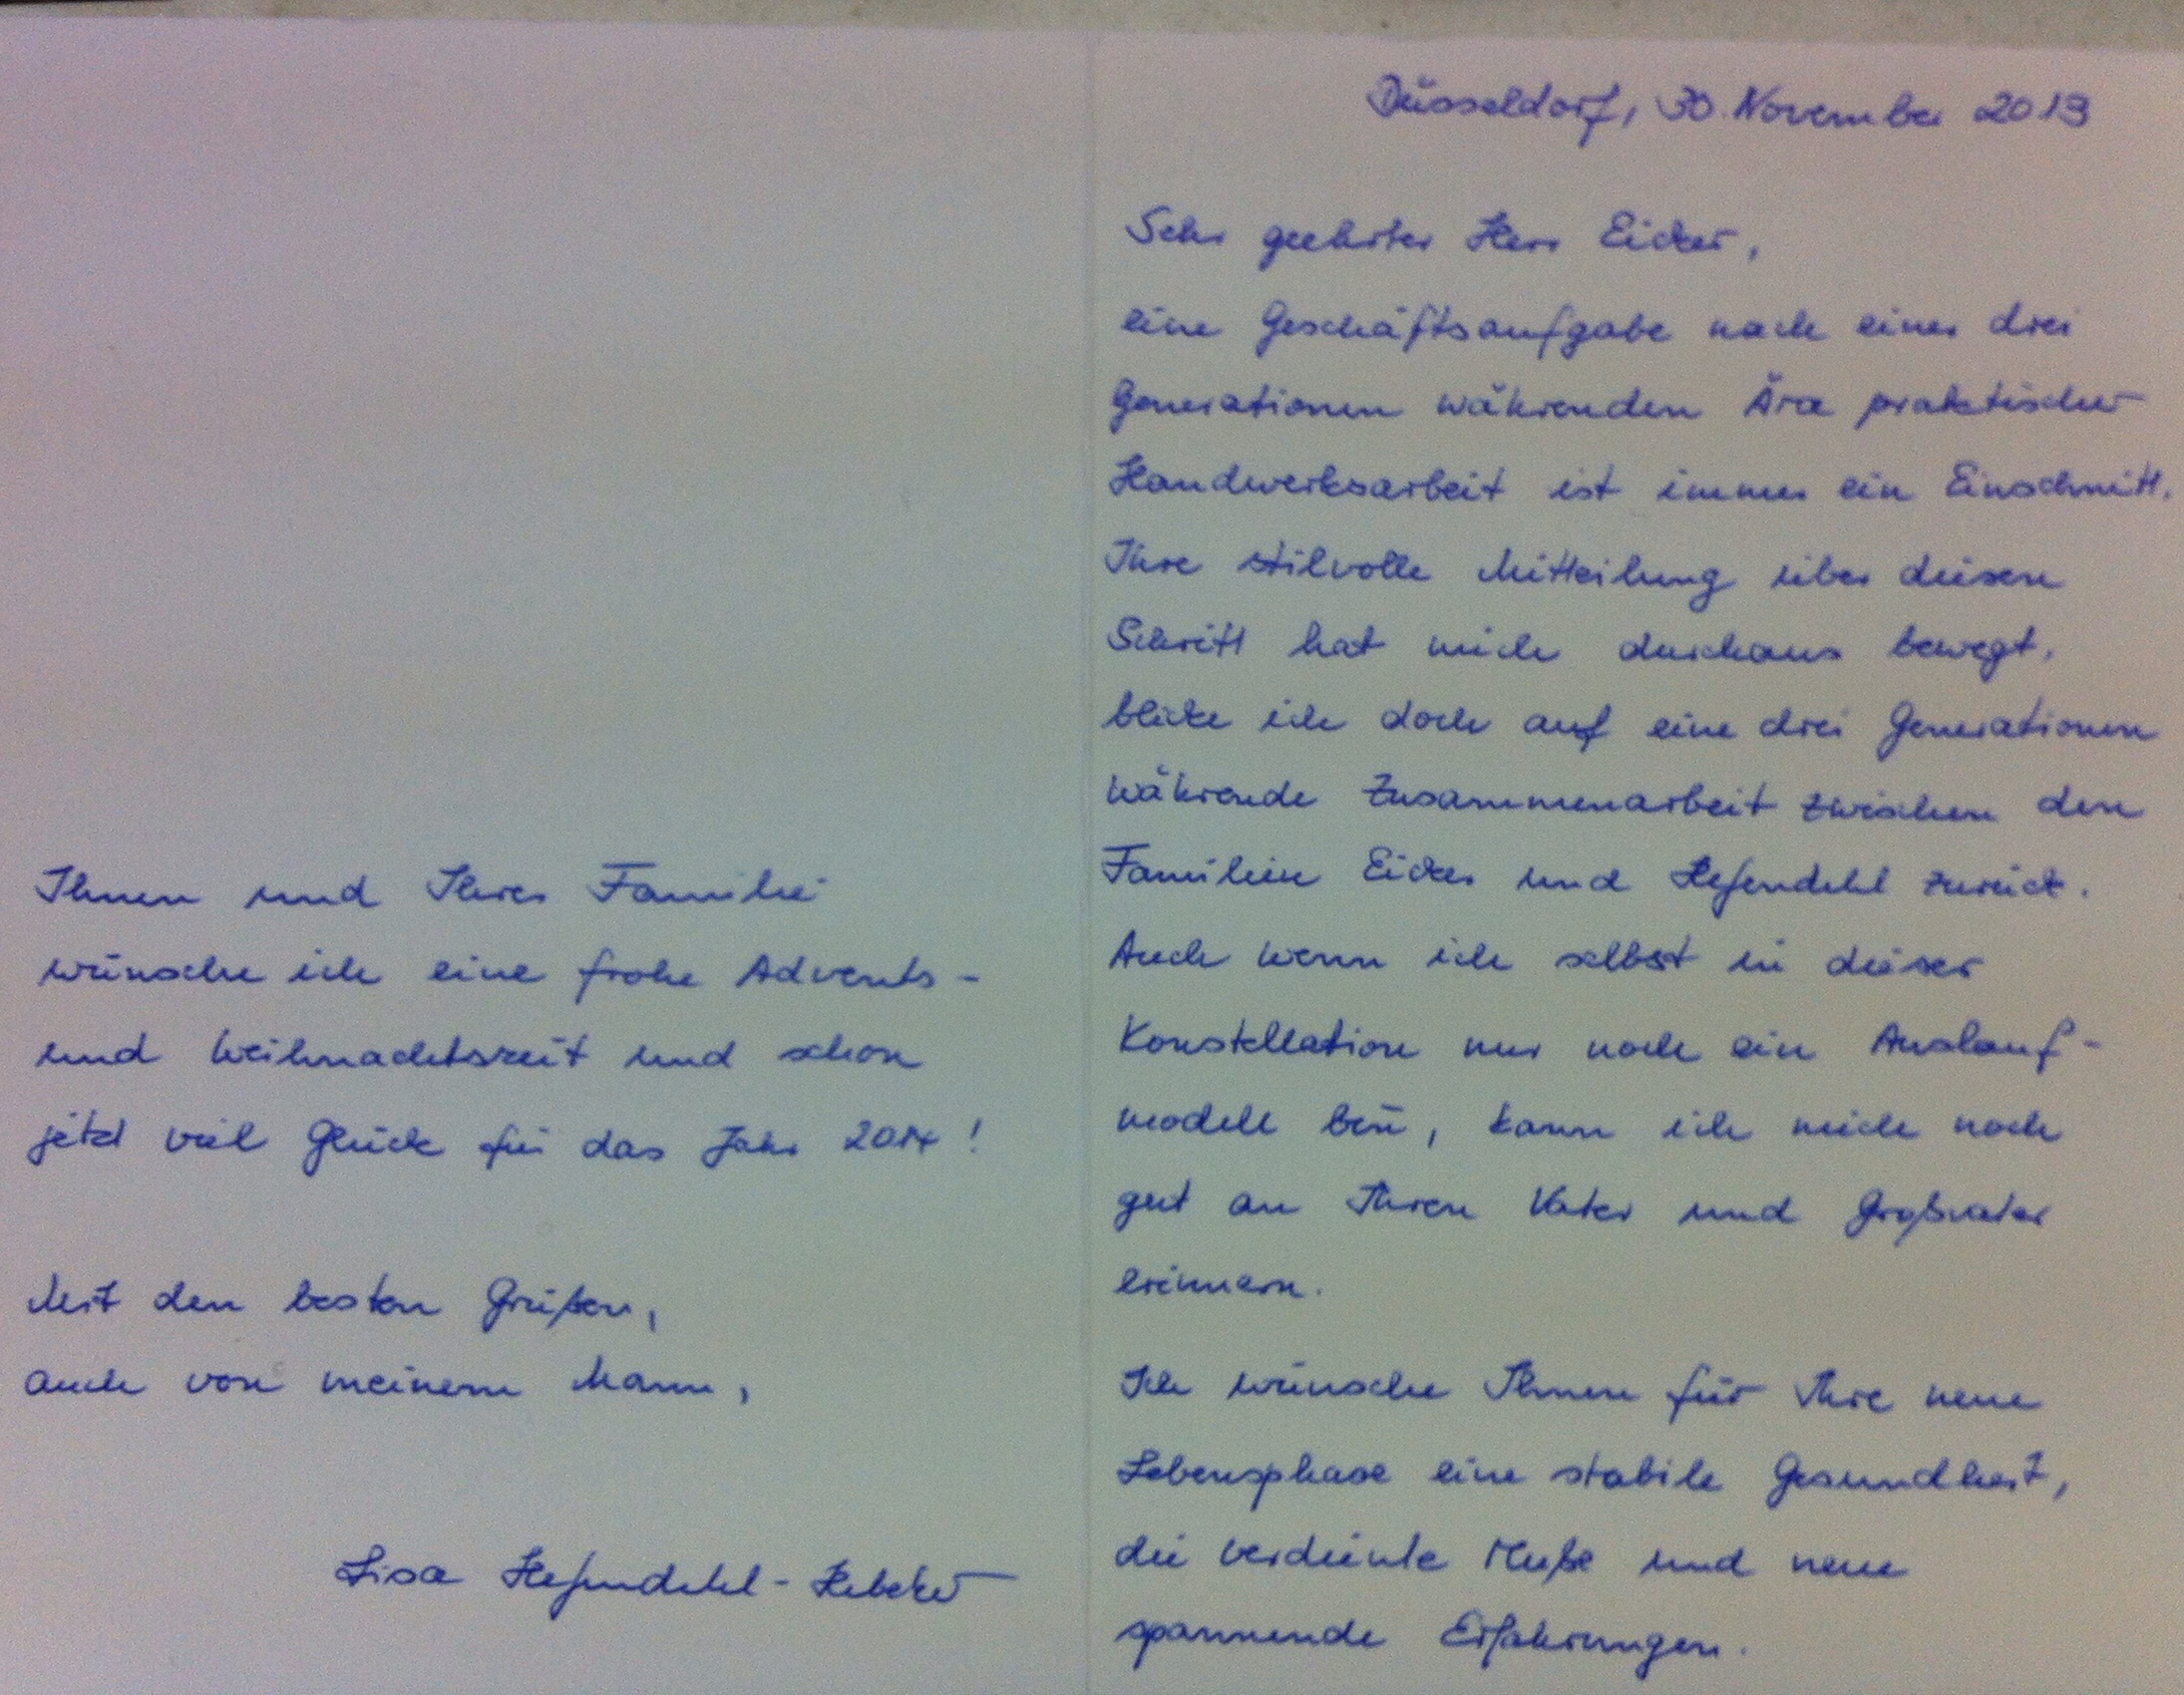 Düsseldorf, 30. November 2013
Sehr geehrter Herr Eicker,
eine Geschäftsaufgabe nach einer drei
Generationen währenden Ära praktischer
Handwerksarbeit ist immer ein Einschnitt.
Ihre stilvolle Mitteilung über diesen
Schritt hat mich durchaus bewegt,
blicke ich doch auf eine drei Generationen
währende Zusammenarbeit zwischen den
Familien Eicker und Hefendehl zurück.
Auch wenn ich selbst in dieser
Konstellation nur noch ein Auslauf-
modell bin, kann ich mich noch
gut an Ihren Vater und Großvater
erinnern.
Ich wünsche Ihnen für Ihre neue
Lebensphase eine stabile Gesundheit,
die verdiente Muße und neue
spannende Erfahrungen.
Ihnen und Ihrer Familie
wünsche ich eine frohe Advents-
und Weihnachtszeit und schon
jetzt viel Glück für das Jahr 2014!
Mit den besten Grüßen,
auch von meinem Mann,
Lisa Hefendehl-